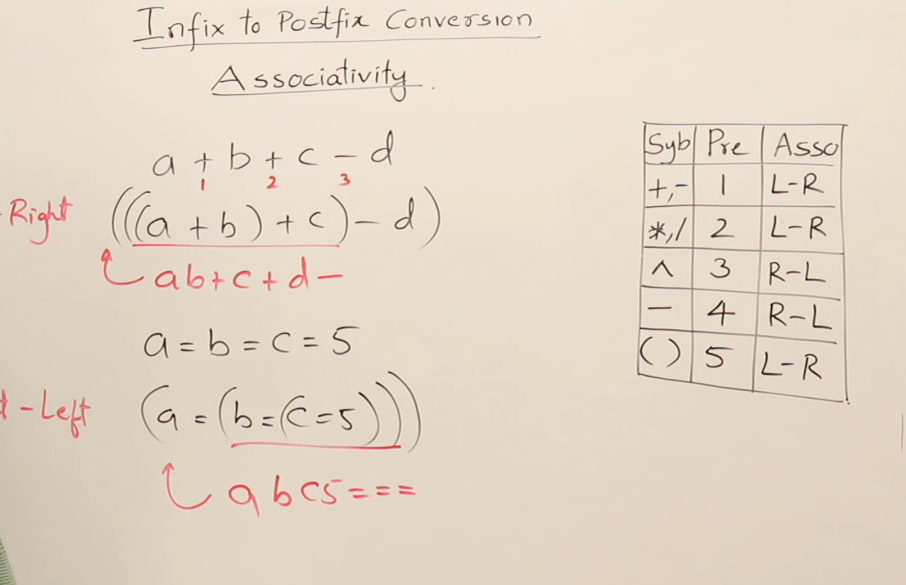 Infix to Postfix Conversion
Associativity.
a + b + c - d
1 2 3
Right (((a + b) + c) - d)
ab+c+d-
a = b = c = 5
-Left (a = (b = (c = 5)))
abc5===
Syb Pre Asso
+,- 1 L-R
*,/ 2 L-R
^ 3 R-L
- 4 R-L
() 5 L-R